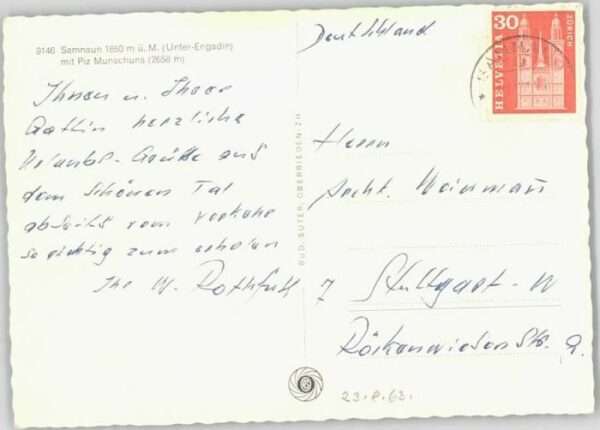 9146 Samnaun 1850 m ü. M. (Unter-Engadin)
mit Piz Munschuns (2658 m)
Ihnen u. Ihrer
Gattin herzliche
Urlaubs-Grüße aus
dem schönen Tal
abseits vom
so richtig zum erholen
Ihr W. Rothfuß
RUD. SUTER, OBERRIEDEN-ZH
Deutschland
HELVETIA 30
ZÜRICH
Herrn
7 Stuttgart-W
23.8.63.